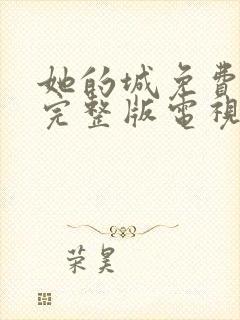 她的城免費
完整版電視
荣昊